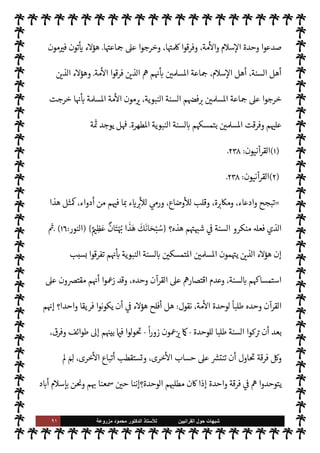 صدعوا وحدة الإسلام والأمة، وفرقوا كلمتها، وخرجوا على جماعتها. هؤلاء يأتون فيرمون
أهل السنة، أهل الإسلام، جماعة المسلمين بأنهم هم الذين فرقوا الأمة. وهؤلاء الذين
خرجوا على جماعة المسلمين برفضهم السنة النبوية، يرمون الأمة المسلمة بأنها خرجت
عليهم وفرقت المسلمين بتمسكهم بالسنة النبوية المطهرة. فهل يوجد ثمَّة
(١) القرآنيون: ٢٣٨.
(٢) القرآنيون: ٢٣٨.
=تبجح وادعاء، ومكابرة، وقلب للأوضاع، ورمي للأبرياء بما فيهم من أدواء، كمثل هذا
الذي فعله منكرو السنة في شبهتهم هذه؟ (سُبْحَانَكَ هَذَا بُهْتَانٌ عَظِيمٌ) (النور:١٦) .ثم
إن هؤلاء الذين يتهمون المسلمين المتمسكين بالسنة النبوية بأنهم تفرقوا بسبب
استمساكهم بالسنة، وعدم اقتصارهم على القرآن وحده، وقد زعموا أنهم مقتصرون على
القرآن وحده طلباً لوحدة الأمة، نقول: هل أفلح هؤلاء في أن يكونوا فريقا واحدا؟ إنهم
بعد أن تركوا السنة طلبا للوحدة - كما يزعمون زوراً - تحولوا فيما بينهم إلى طوائف وفرق،
وكل فرقة تحاول أن تنتشر على حساب الأخرى، وتستقطب أتباع الأخرى، لِمَ لم
يتوحدوا هم في فرقة واحدة إذا كان مطلبهم الوحدة؟إننا حين سمعنا بهم ونحن بإسلام أباد
شبهات حول القرانيين للأستاذ الدكتور محمود مزروعة ٩١